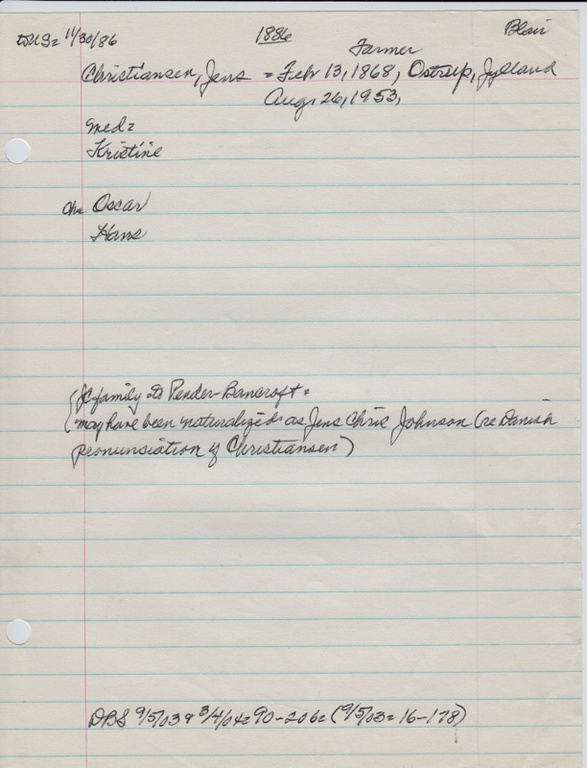 to US= 11/30/86 1886 Blair
Farmer
Christiansen, Jens = Feb 13, 1868, Ostrup, Jylland
Aug. 26, 1953,
med=
Kristine
ch= Oscar
Hans
(JC family to Pender-Bancroft=
may have been naturalized as Jens Chris Johnson (re Danish
pronunsiation of Christiansen)
DBS 9/5/03 & 3/4/04= 90-206= (9/5/03= 16-178)